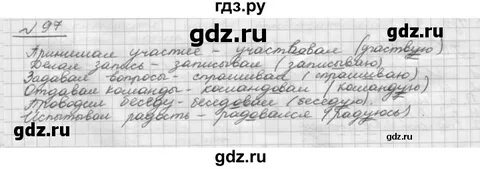 гдз.ру
№ 97
Принимал участие – участвовал (участвую)
Делал запись – записывал (записываю)
Задавал вопросы – спрашивал (спрашиваю)
Отдавал команды – командовал (командую)
Проводил беседу – беседовал (беседую).
Испытывал радость – радовался (радуюсь).
gdz.ru
gdz.ru
gdz.ru
gdz.ru
gdz.ru